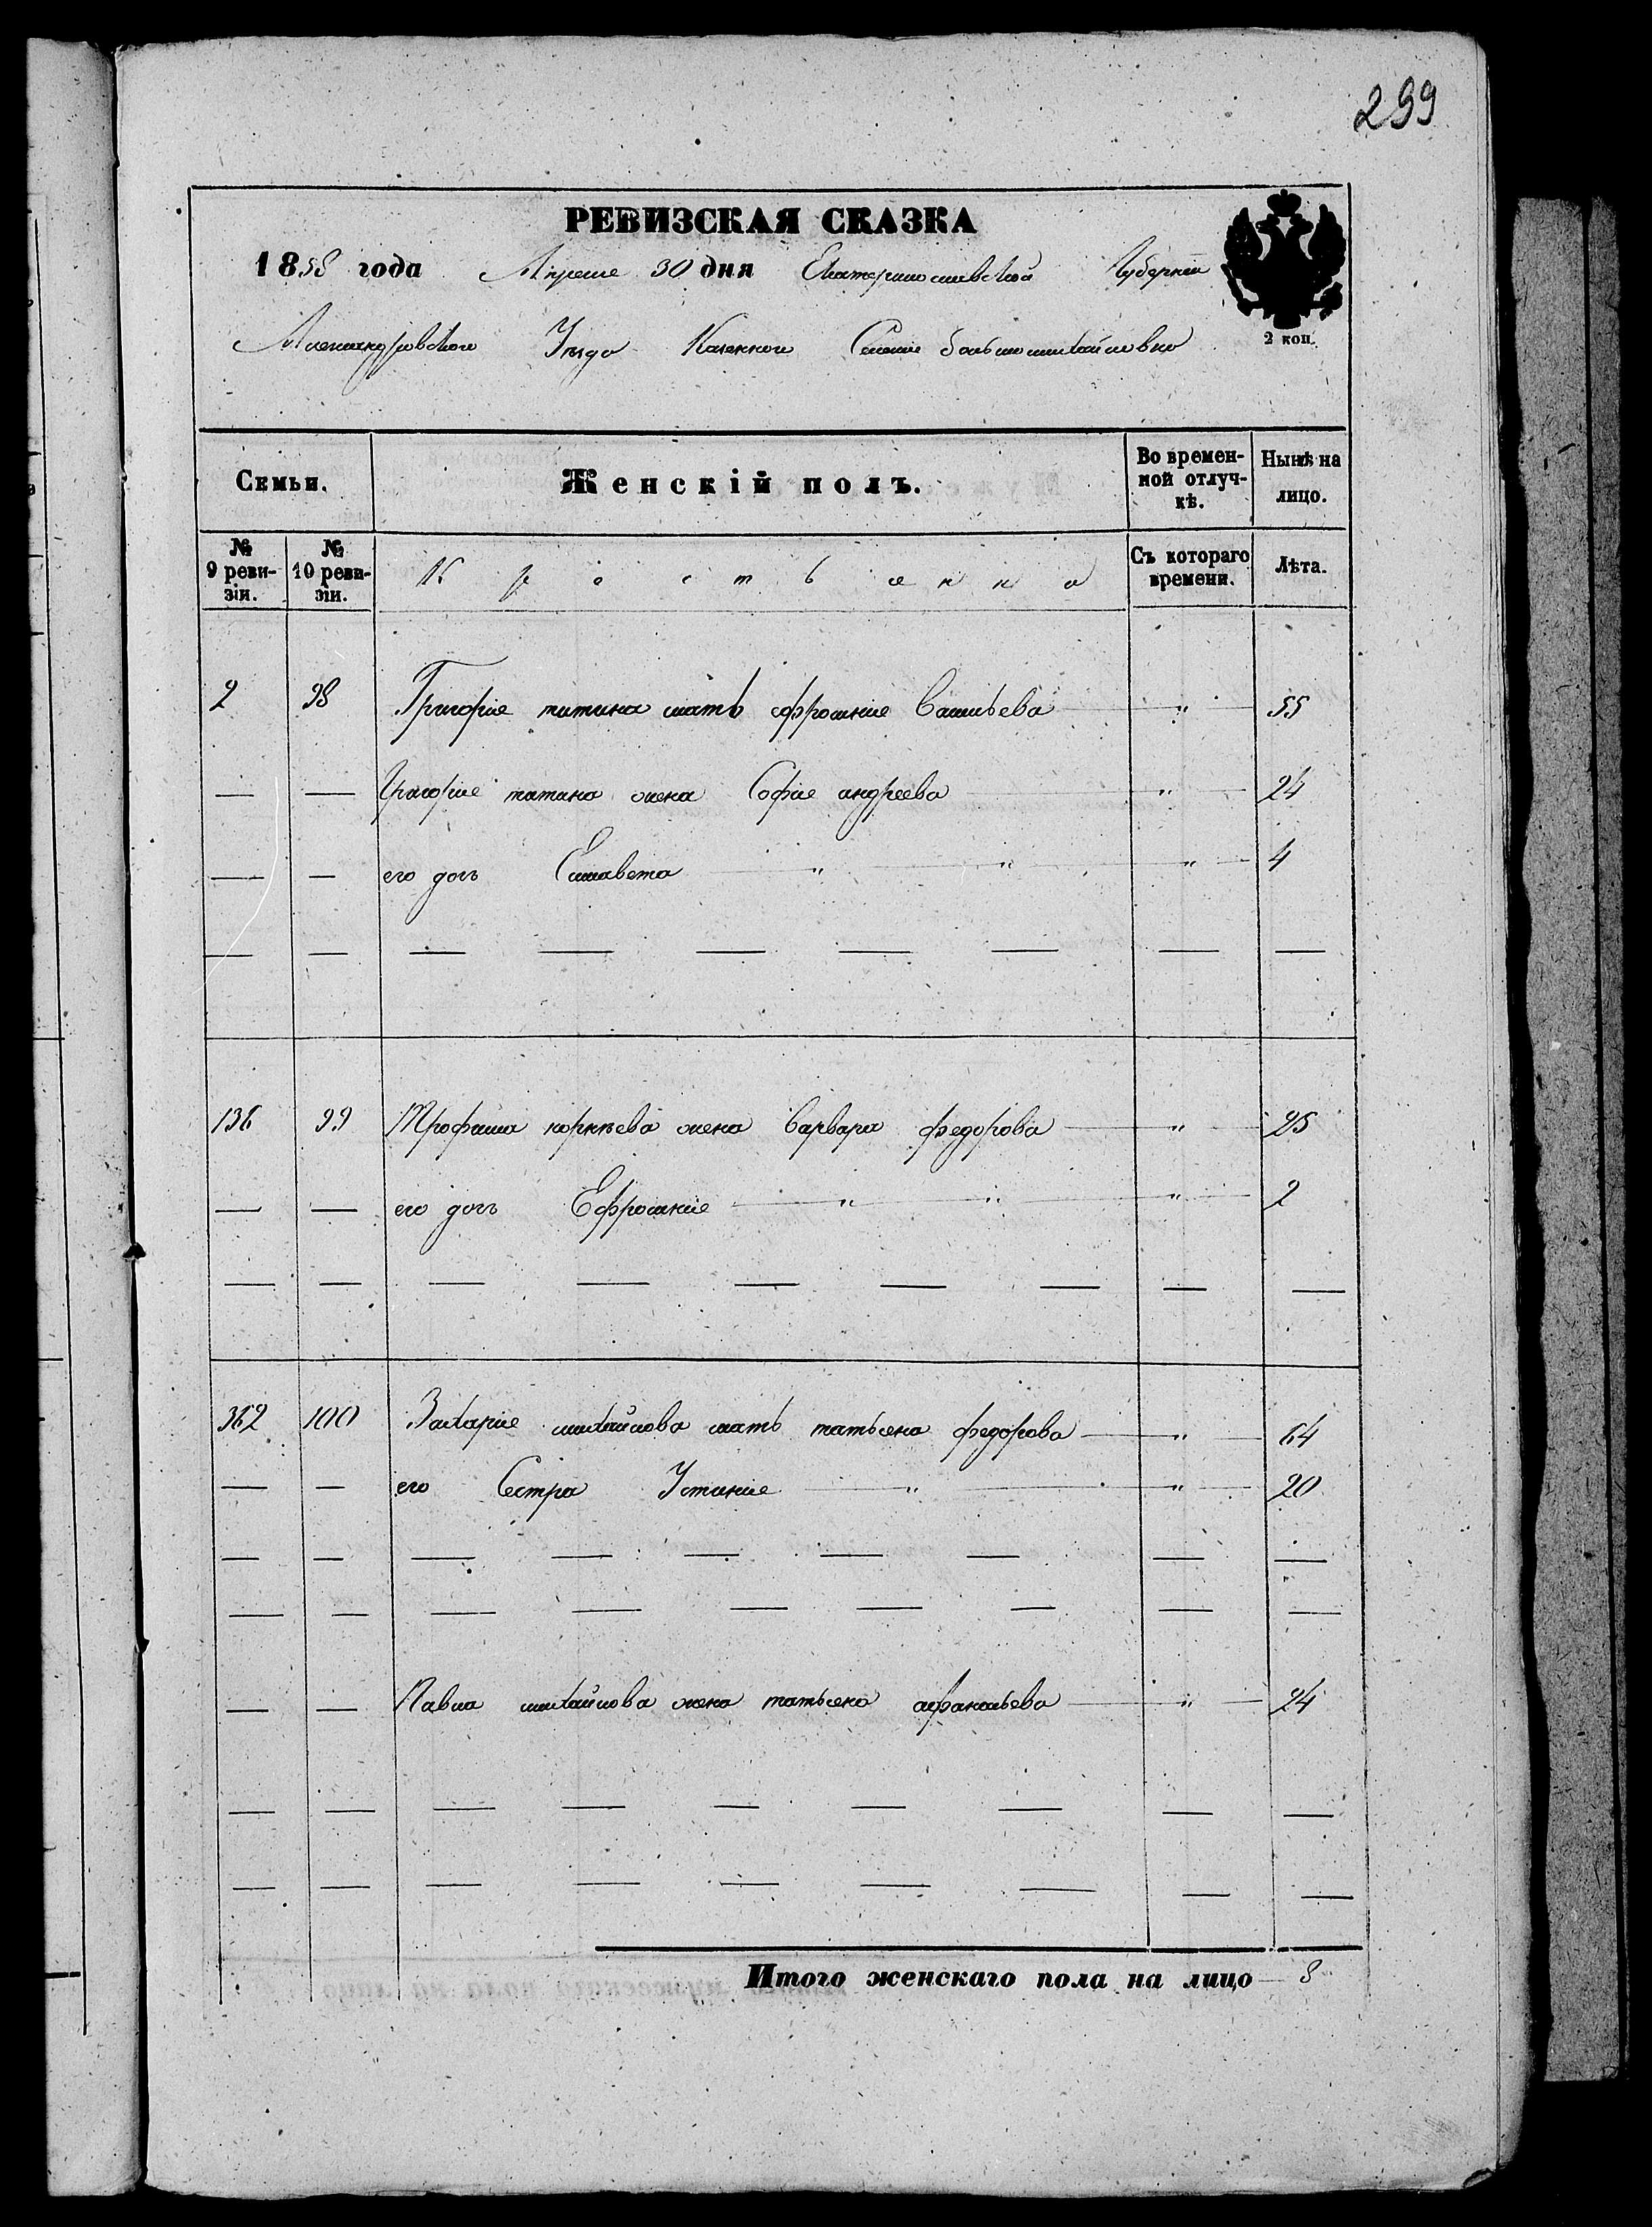 299
РЕВИЗСКАЯ СКАЗКА
1858 года Апреля 30 дня Екатеринославской Губернии
Александровского Уезда Казенного Селения большомихайловки
2 коп.
Семьи. Женскій полъ. Во времен-ной отлуч-кѣ. Нынѣ на лицо.
№ 9 реви-зіи. № 10 реви-зіи. Съ котораго времени. Лѣта.
2 98 Григория титина мать ефросиния Васильева " 55
— — Григория титина жена София андреева " 24
— — его дочь Елисавета " " " 4
— — — — — — — — —
136 99 Трофима корнѣева жена варвара федорова " 25
— — его дочь Ефросиния " " " 2
— — — — — — — — —
362 100 Захария михайлова мать татьяна федорова " 64
— — его Сестра Устиния " " 20
— — — — — — — — —
— — — — — — — — —
— — Павла михайлова жена татьяна афанасьева " 24
— — — — — — — — —
— — — — — — — — —
Итого женскаго пола на лицо — 8